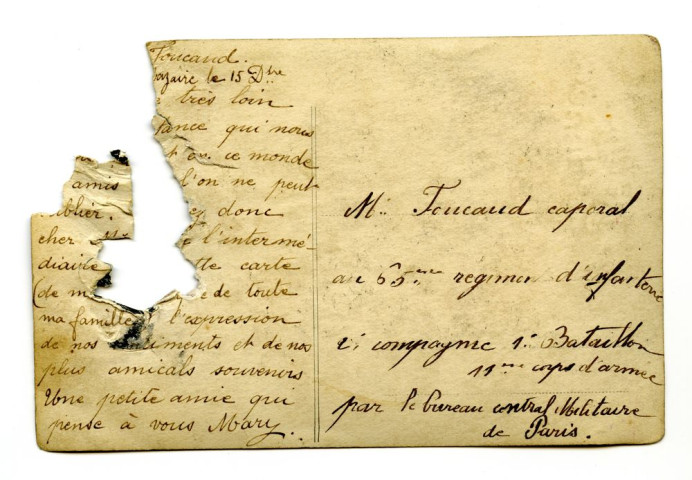 Foucaud.
le 15 Dbre
très loin
qui nous
ce monde
amis l'on ne peut
donc
cher l'intermé-
diaire carte
(de de toute
ma famille l'expression
de nos et de nos
plus amicals souvenirs
Une petite amie qui
pense à vous Mary.
Mr Foucaud caporal
au 65me regimen d'infanterie
2e compagnie 1e Bataillon
11me corps d'armée
par le bureau central Militaire
de Paris.